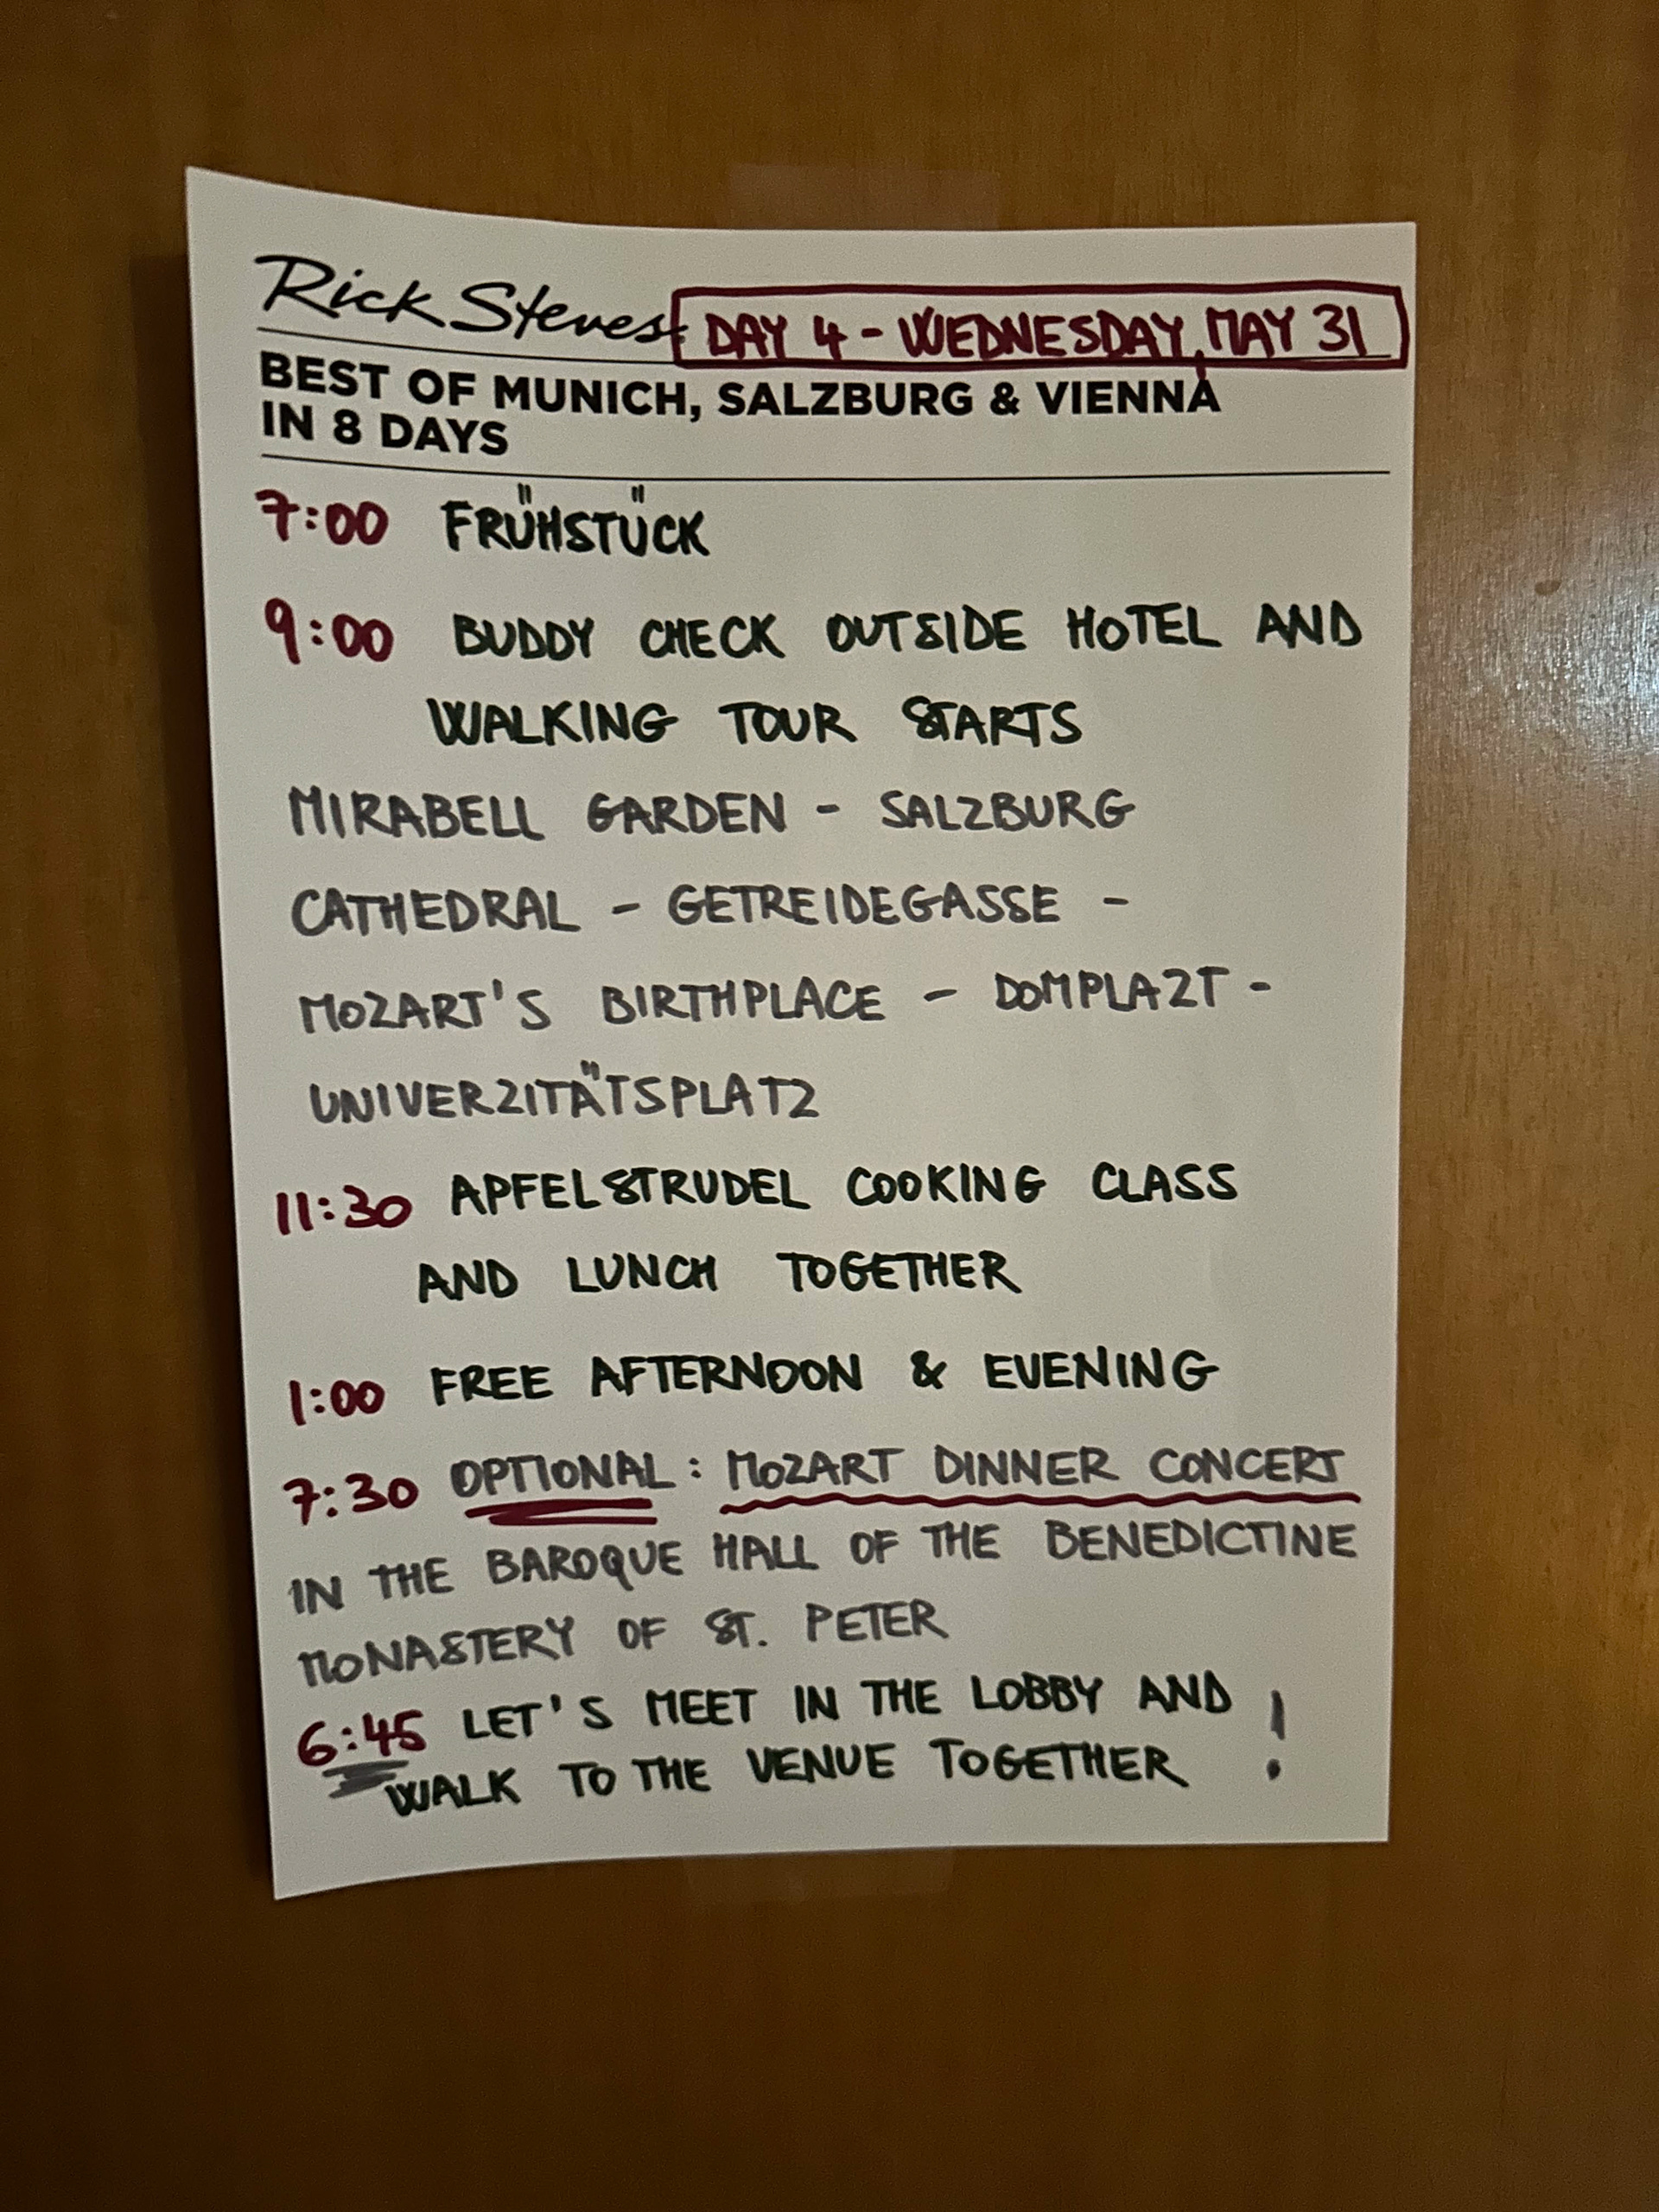 Rick Steves DAY 4 - WEDNESDAY, MAY 31
BEST OF MUNICH, SALZBURG & VIENNA
IN 8 DAYS
7:00 FRÜHSTÜCK
9:00 BUDDY CHECK OUTSIDE HOTEL AND
WALKING TOUR STARTS
MIRABELL GARDEN - SALZBURG
CATHEDRAL - GETREIDEGASSE -
MOZART'S BIRTHPLACE - DOMPLAZT -
UNIVERZITÄTSPLATZ
11:30 APFELSTRUDEL COOKING CLASS
AND LUNCH TOGETHER
1:00 FREE AFTERNOON & EVENING
7:30 OPTIONAL: MOZART DINNER CONCERT
IN THE BAROQUE HALL OF THE BENEDICTINE
MONASTERY OF ST. PETER
6:45 LET'S MEET IN THE LOBBY AND
WALK TO THE VENUE TOGETHER !